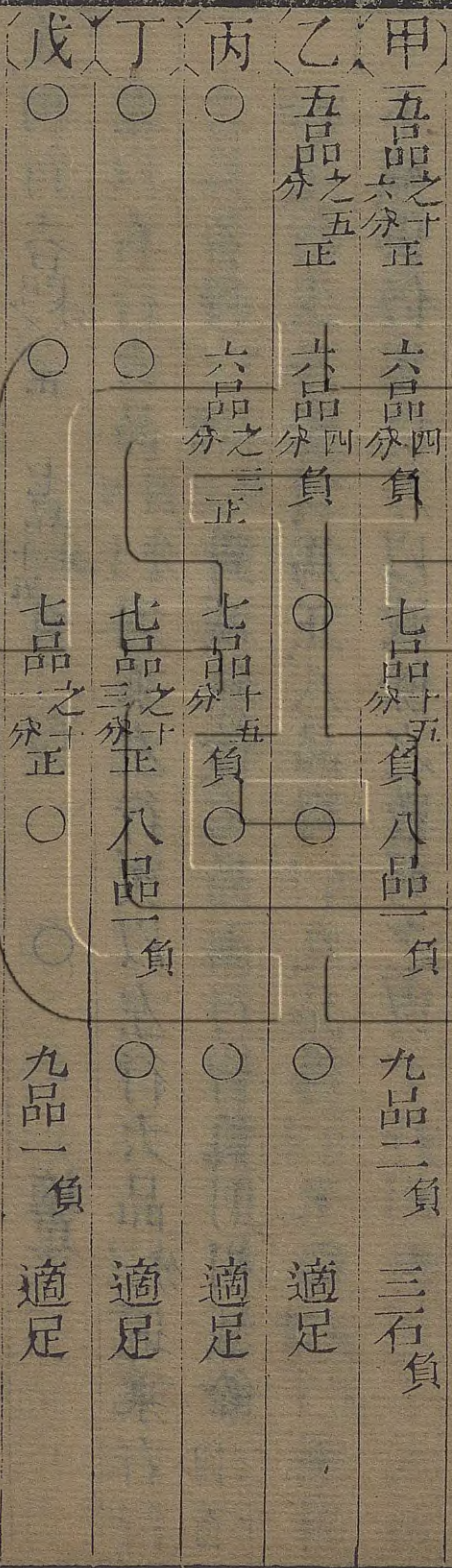 甲 五品之十六分正 六品四分負 七品十五分負 八品一負 九品二負 三石負
乙 五品之五分正 六品四分負 ○ ○ ○ 適足
丙 ○ 六品之三分正 七品十五分負 ○ ○ 適足
丁 ○ ○ 七品之十三分正 八品一負 ○ 適足
戊 ○ ○ 七品之十一分正 ○ 九品一負 適足